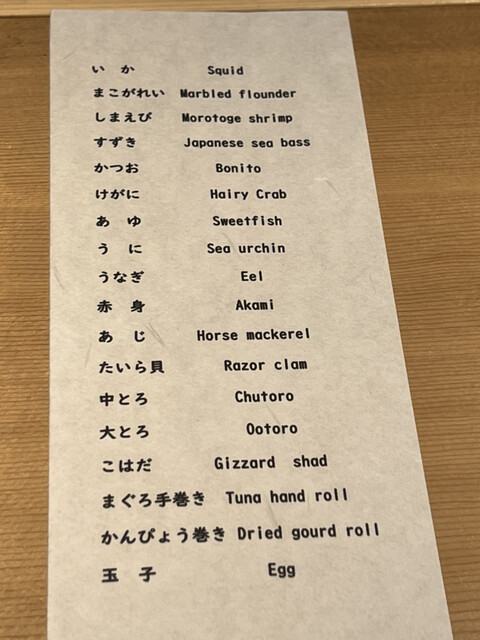 いか Squid
まこがれい Marbled flounder
しまえび Morotoge shrimp
すずき Japanese sea bass
かつお Bonito
けがに Hairy Crab
あゆ Sweetfish
うに Sea urchin
うなぎ Eel
赤身 Akami
あじ Horse mackerel
たいら貝 Razor clam
中とろ Chutoro
大とろ Ootoro
こはだ Gizzard shad
まぐろ手巻き Tuna hand roll
かんぴょう巻き Dried gourd roll
玉子 Egg